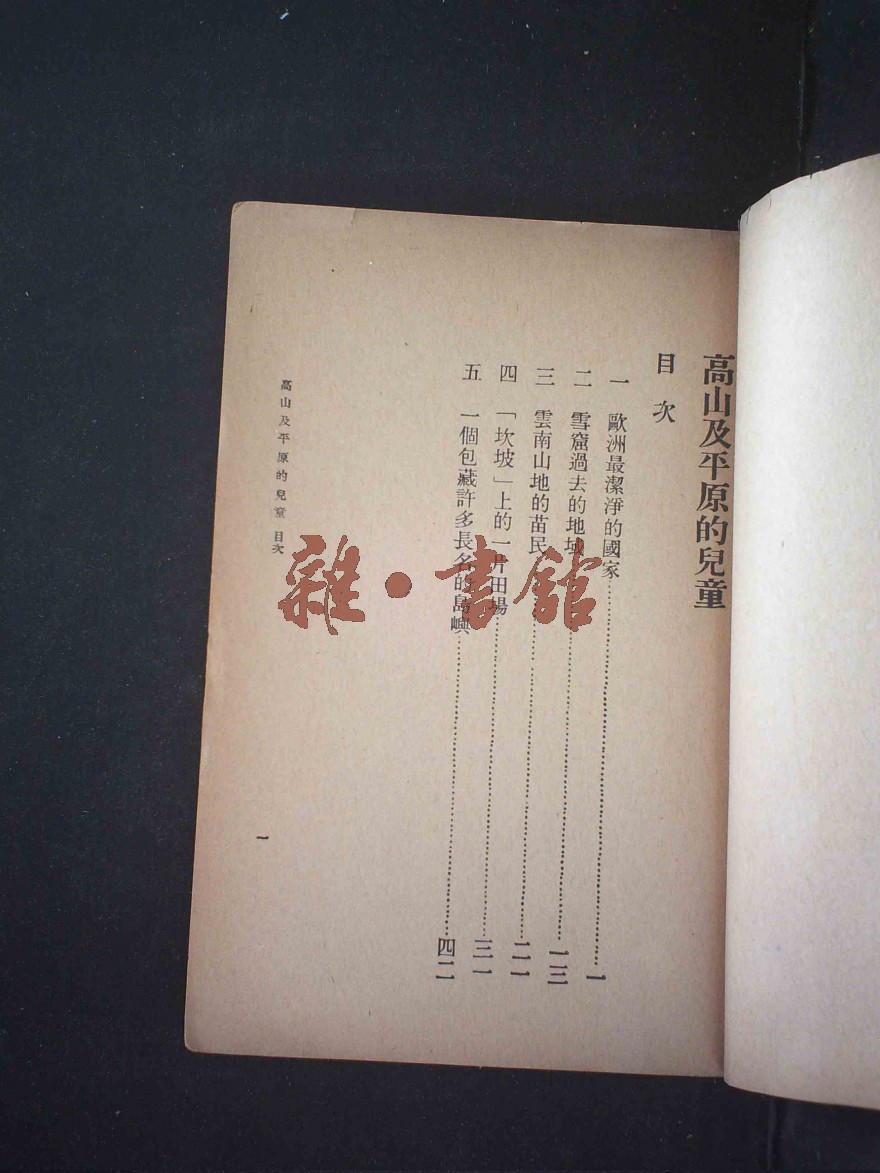 高山及平原的兒童
目次
一 歐洲最潔淨的國家……一
二 雪窟過去的地域……一三
三 雲南山地的苗民……二一
四 「坎坡」上的一片田場……三一
五 一個包藏許多長名的島嶼……四二
高山及平原的兒童 目次
一
雜·書館